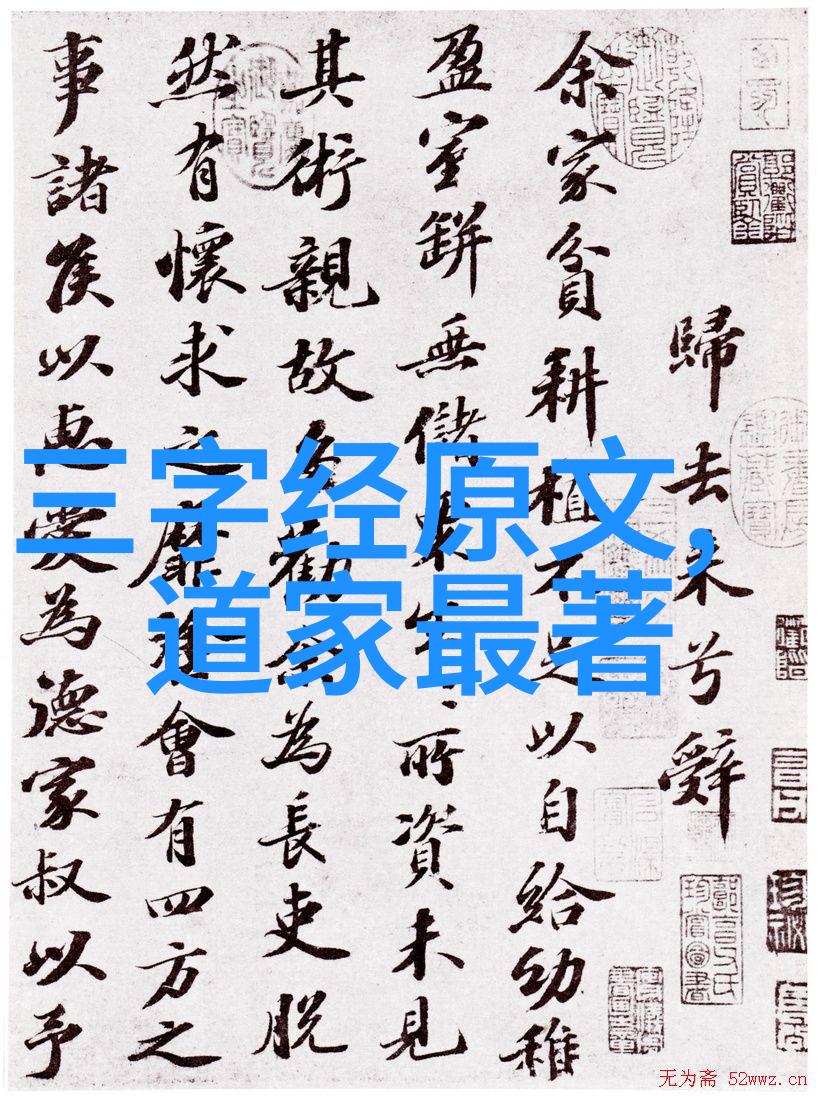 三字经原文,
道家最著
歸去来兮辭
余家貧耕植不足以自給幼稚
盈室缾無儲粟生生所資未見
其術親故多勸余為長吏脱
然有懷求之靡途會有四方之
事諸侯以惠愛為德家叔以予
无为斋 52wwz.cn